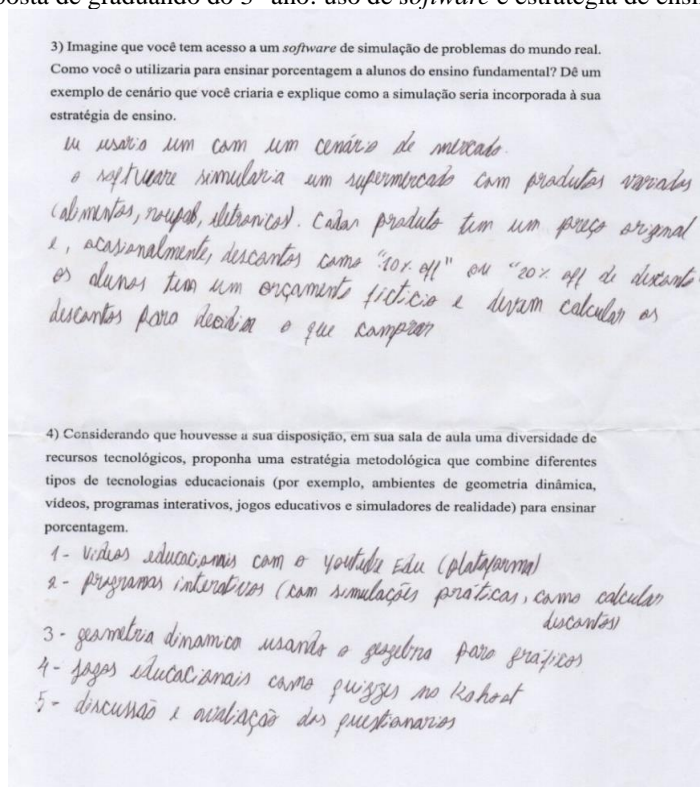 posta de graduando do 3º ano: uso de software e estratégia de ensi
3) Imagine que você tem acesso a um software de simulação de problemas do mundo real.
Como você o utilizaria para ensinar porcentagem a alunos do ensino fundamental? Dê um
exemplo de cenário que você criaria e explique como a simulação seria incorporada à sua
estratégia de ensino.
eu usaria um com um cenário de mercado.
o software simularia um supermercado com produtos variados
(alimentos, roupas, eletronicos). Cada produto tem um preço original
e, ocasionalmente, descontos como "10% off" ou "20% off de desconto
os alunos tem um orçamento ficticio e devem calcular os
descontos para decidir o que comprar
4) Considerando que houvesse a sua disposição, em sua sala de aula uma diversidade de
recursos tecnológicos, proponha uma estratégia metodológica que combine diferentes
tipos de tecnologias educacionais (por exemplo, ambientes de geometria dinâmica,
vídeos, programas interativos, jogos educativos e simuladores de realidade) para ensinar
porcentagem.
1 - videos educacionais com o youtube Edu (plataforma)
2 - programas interativos (com simulações práticas, como calcular
descontos)
3 - geometria dinamica usando o geogebra para gráficos
4 - jogos educacionais como quizzes no Kahoot
5 - discussão e avaliação dos questionarios